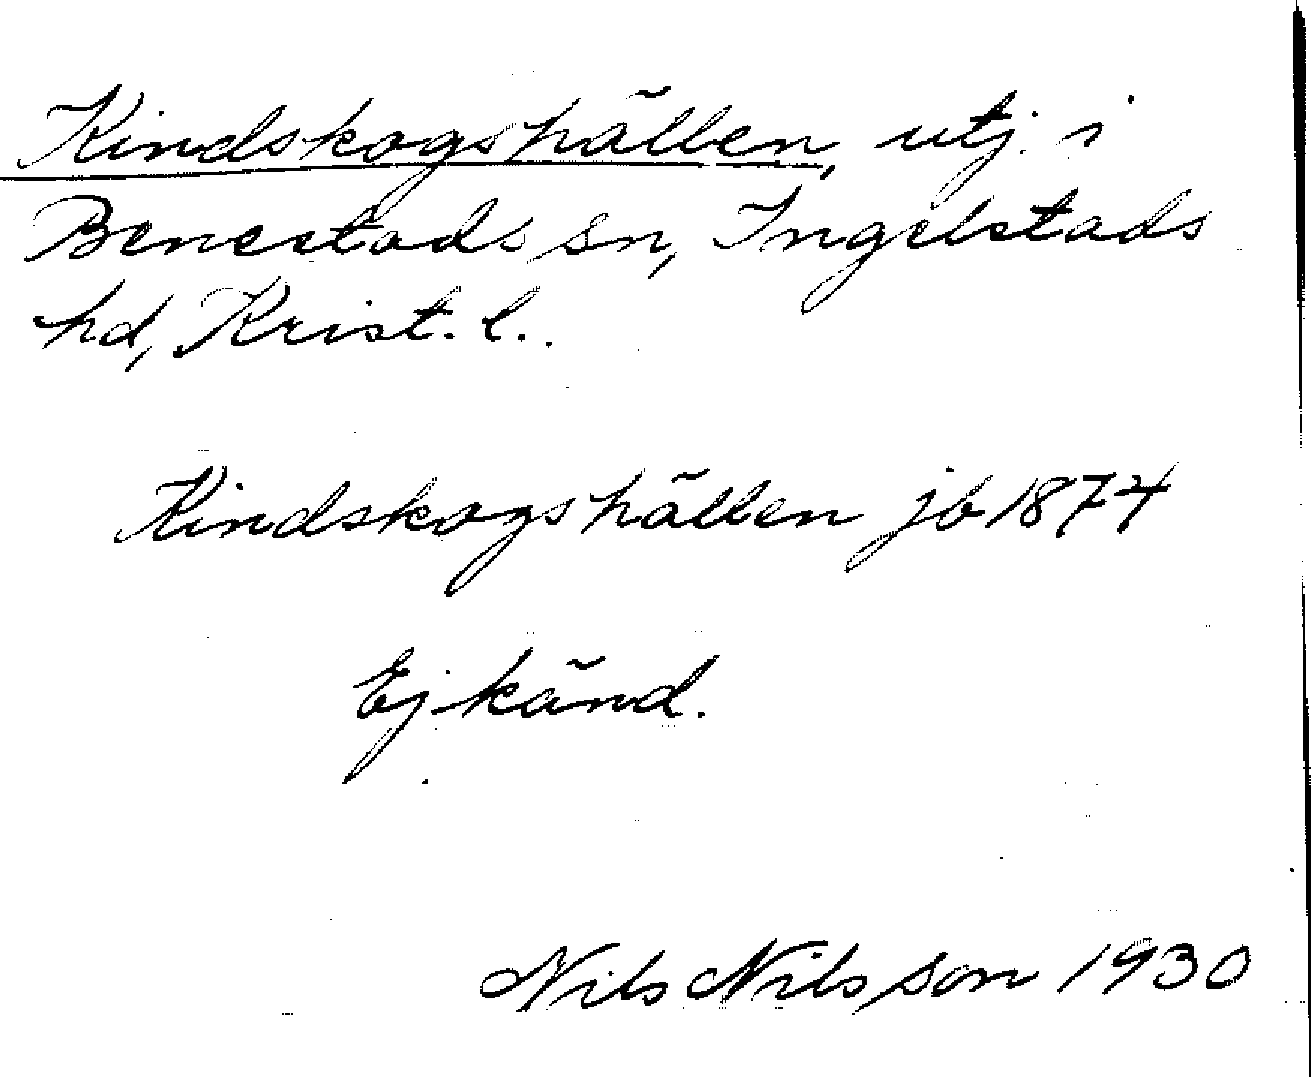 Kindskogshällen, utj. i
Benestads sn, Ingelstads
hd, Krist. l..
Kindskogshällen jb 1874
Ej känd.
Nils Nilsson 1930